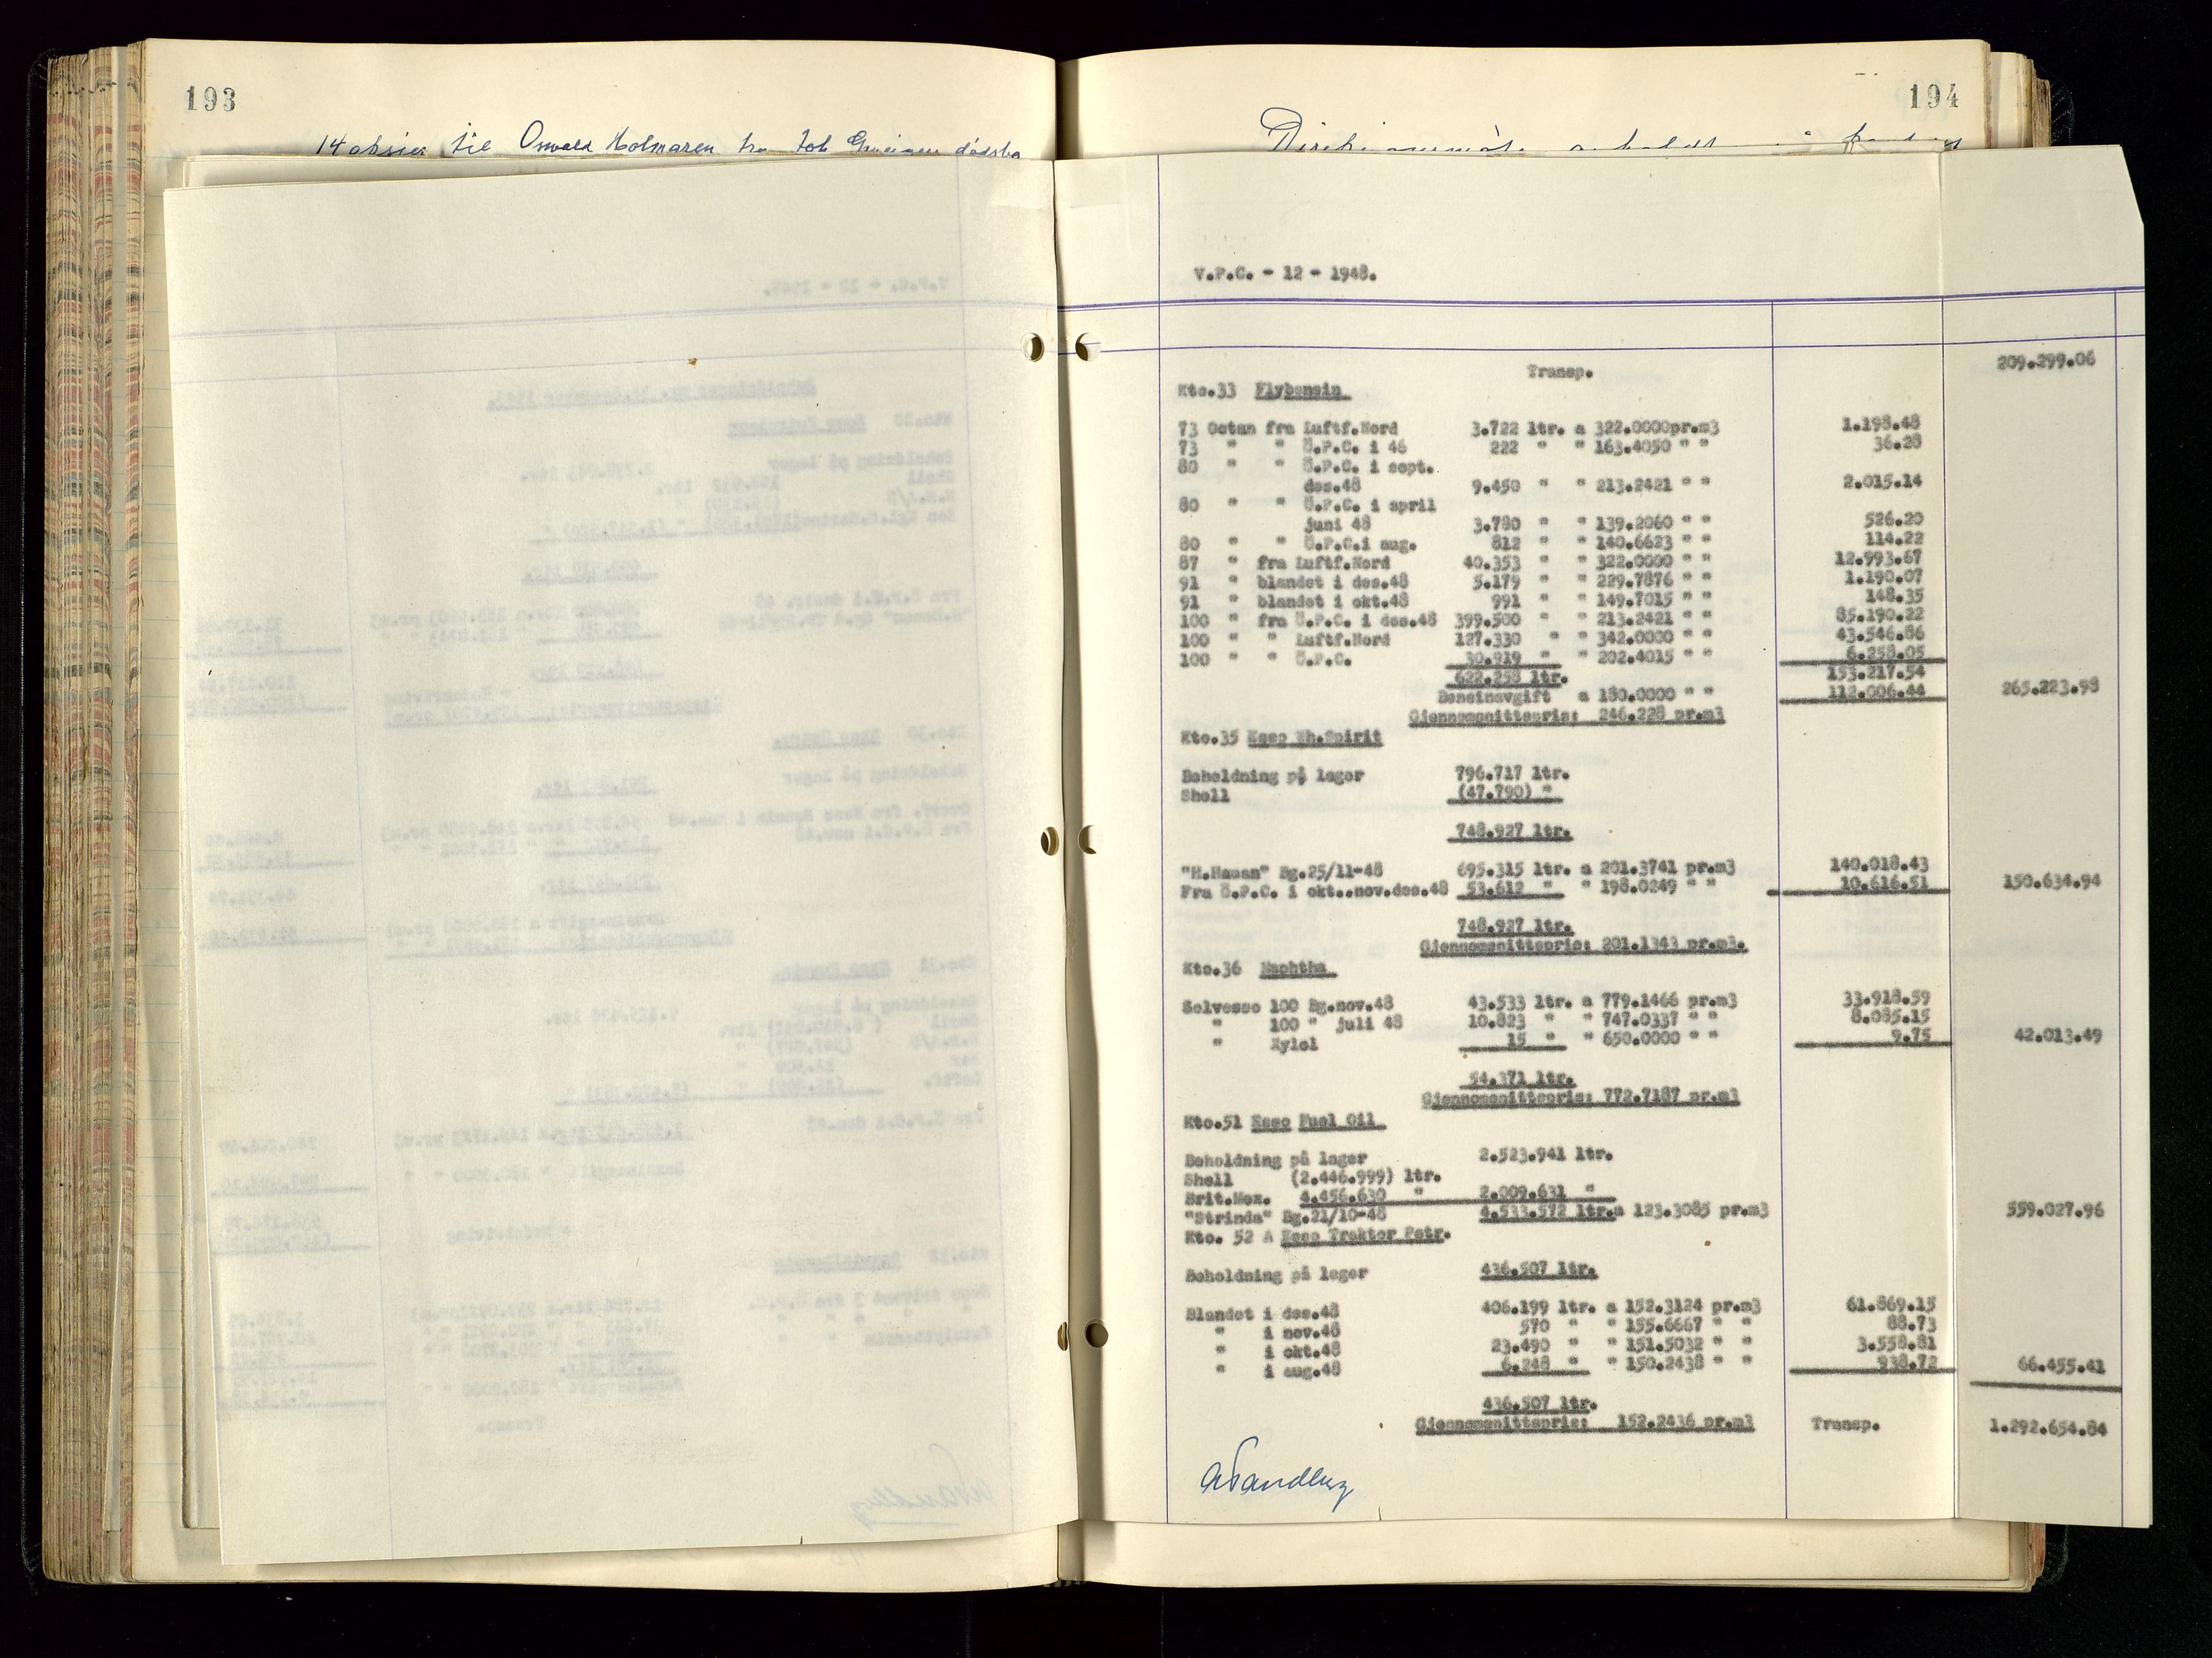 193
14 aksier til Oswald Holmaren fra dødsbo
194
V.P.C. - 12 - 1948.
Transp. 209.299.06
Kto.33 Flybensin
73 Octan fra Luftf.Nord 3.722 ltr. a 322.0000pr.m3 1.198.48
73 " " Ö.P.C. i 46 222 " " 163.4050 " " 36.28
80 " " Ö.P.C. i sept.
des.48 9.450 " " 213.2421 " " 2.015.14
80 " " Ö.P.C. i april
juni 48 3.780 " " 139.2060 " " 526.20
80 " " Ö.P.C.i aug. 812 " " 140.6623 " " 114.22
87 " fra Luftf.Nord 40.353 " " 322.0000 " " 12.993.67
91 " blandet i des.48 5.179 " " 229.7876 " " 1.190.07
91 " blandet i okt.48 991 " " 149.7015 " " 148.35
100 " fra Ö.P.C. i des.48 399.500 " " 213.2421 " " 85.190.22
100 " " Luftf.Nord 127.330 " " 342.0000 " " 43.546.86
100 " " Ö.P.C. 30.919 " " 202.4015 " " 6.258.05
622.258 ltr. 153.217.54
Bensinavgift a 180.0000 " " 112.006.44 265.223.98
Gjennomsnittspris: 246.228 pr.m3
Kto.35 Esso Wh.Spirit
Beholdning på lager 796.717 ltr.
Shell (47.790) "
748.927 ltr.
"H.Hauan" Bg.25/11-48 695.315 ltr. a 201.3741 pr.m3 140.018.43
Fra Ö.P.C. i okt..nov.des.48 53.612 " " 198.0249 " " 10.616.51 150.634.94
748.927 ltr.
Gjennomsnittspris: 201.1343 pr.m3.
Kto.36 Naphtha
Solvesso 100 Bg.nov.48 43.533 ltr. a 779.1466 pr.m3 33.918.59
" 100 " juli 48 10.823 " " 747.0337 " " 8.085.15
" Xylol 15 " " 650.0000 " " 9.75 42.013.49
54.371 ltr.
Gjennomsnittspris: 772.7187 pr.m3
Kto.51 Esso Fuel Oil
Beholdning på lager 2.523.941 ltr.
Shell (2.446.999) ltr.
Brit.Mex. 4.456.630 " 2.009.631 "
"Strinda" Bg.21/10-48 4.533.572 ltr.a 123.3085 pr.m3 559.027.96
Kto. 52 A Esso Traktor Petr.
Beholdning på lager 436.507 ltr.
Blandet i des.48 406.199 ltr. a 152.3124 pr.m3 61.869.15
" i nov.48 570 " " 155.6667 " " 88.73
" i okt.48 23.490 " " 151.5032 " " 3.558.81
" i aug.48 6.248 " " 150.2438 " " 938.72 66.455.41
436.507 ltr.
Gjennomsnittspris: 152.2436 pr.m3 Transp. 1.292.654.84